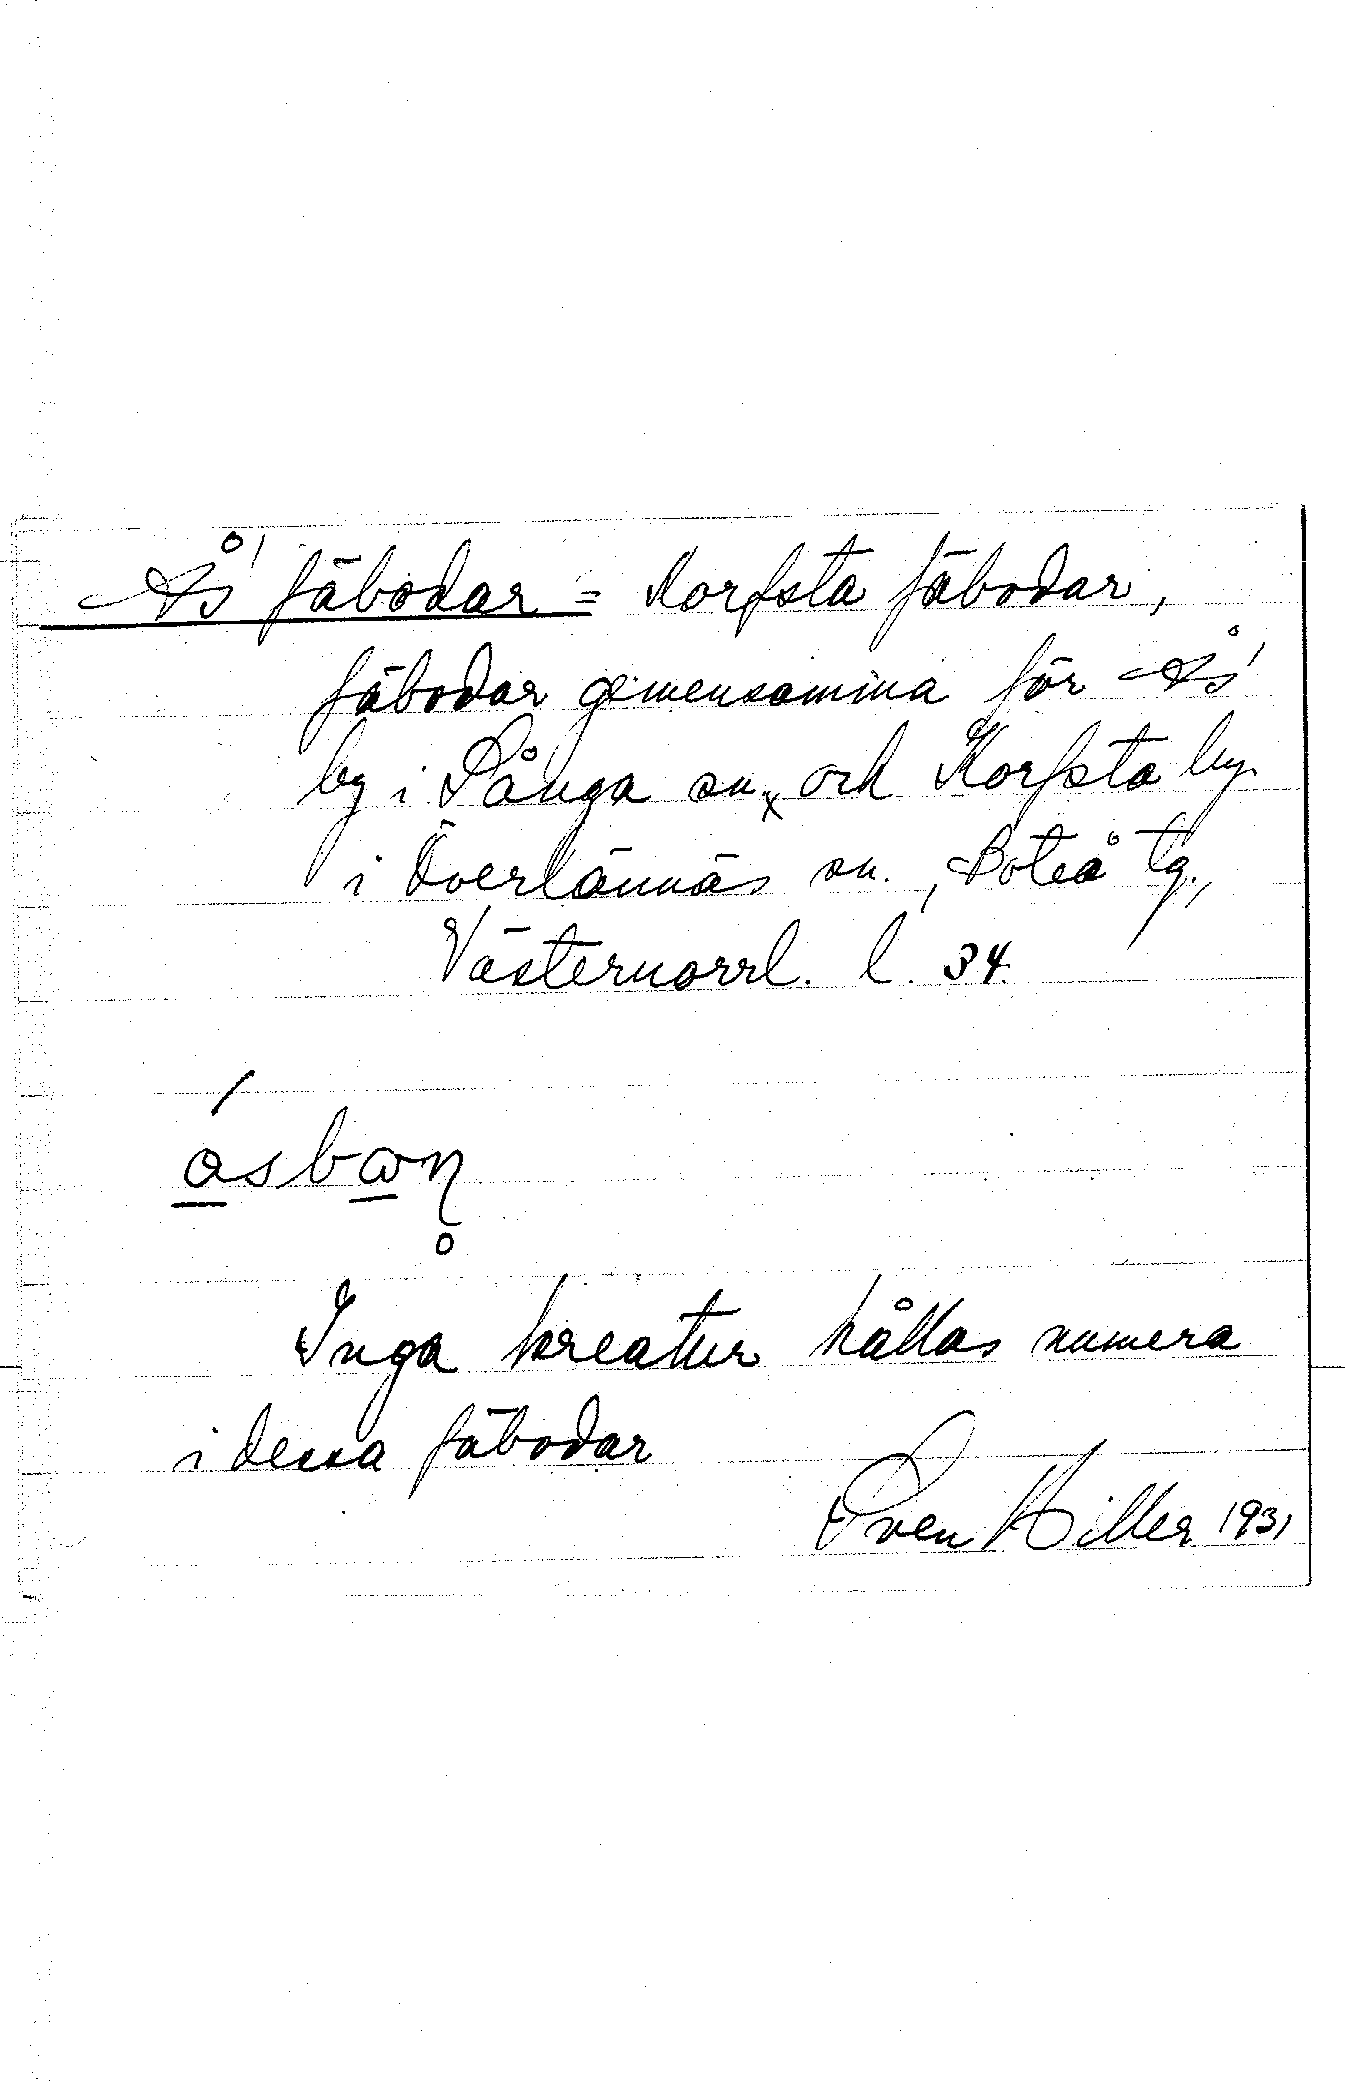 Ås' fäbodar = Korfsta fäbodar,
fäbodar gemensamma för Ås'
by i Sånga sn.x och Korfsta by.
i Överlännäs sn., Boteå tg.,
Västernorrl. l. 34.
åsbωn̥
Inga kreatur hållas numera
i dessa fäbodar
Sven Hiller 1931